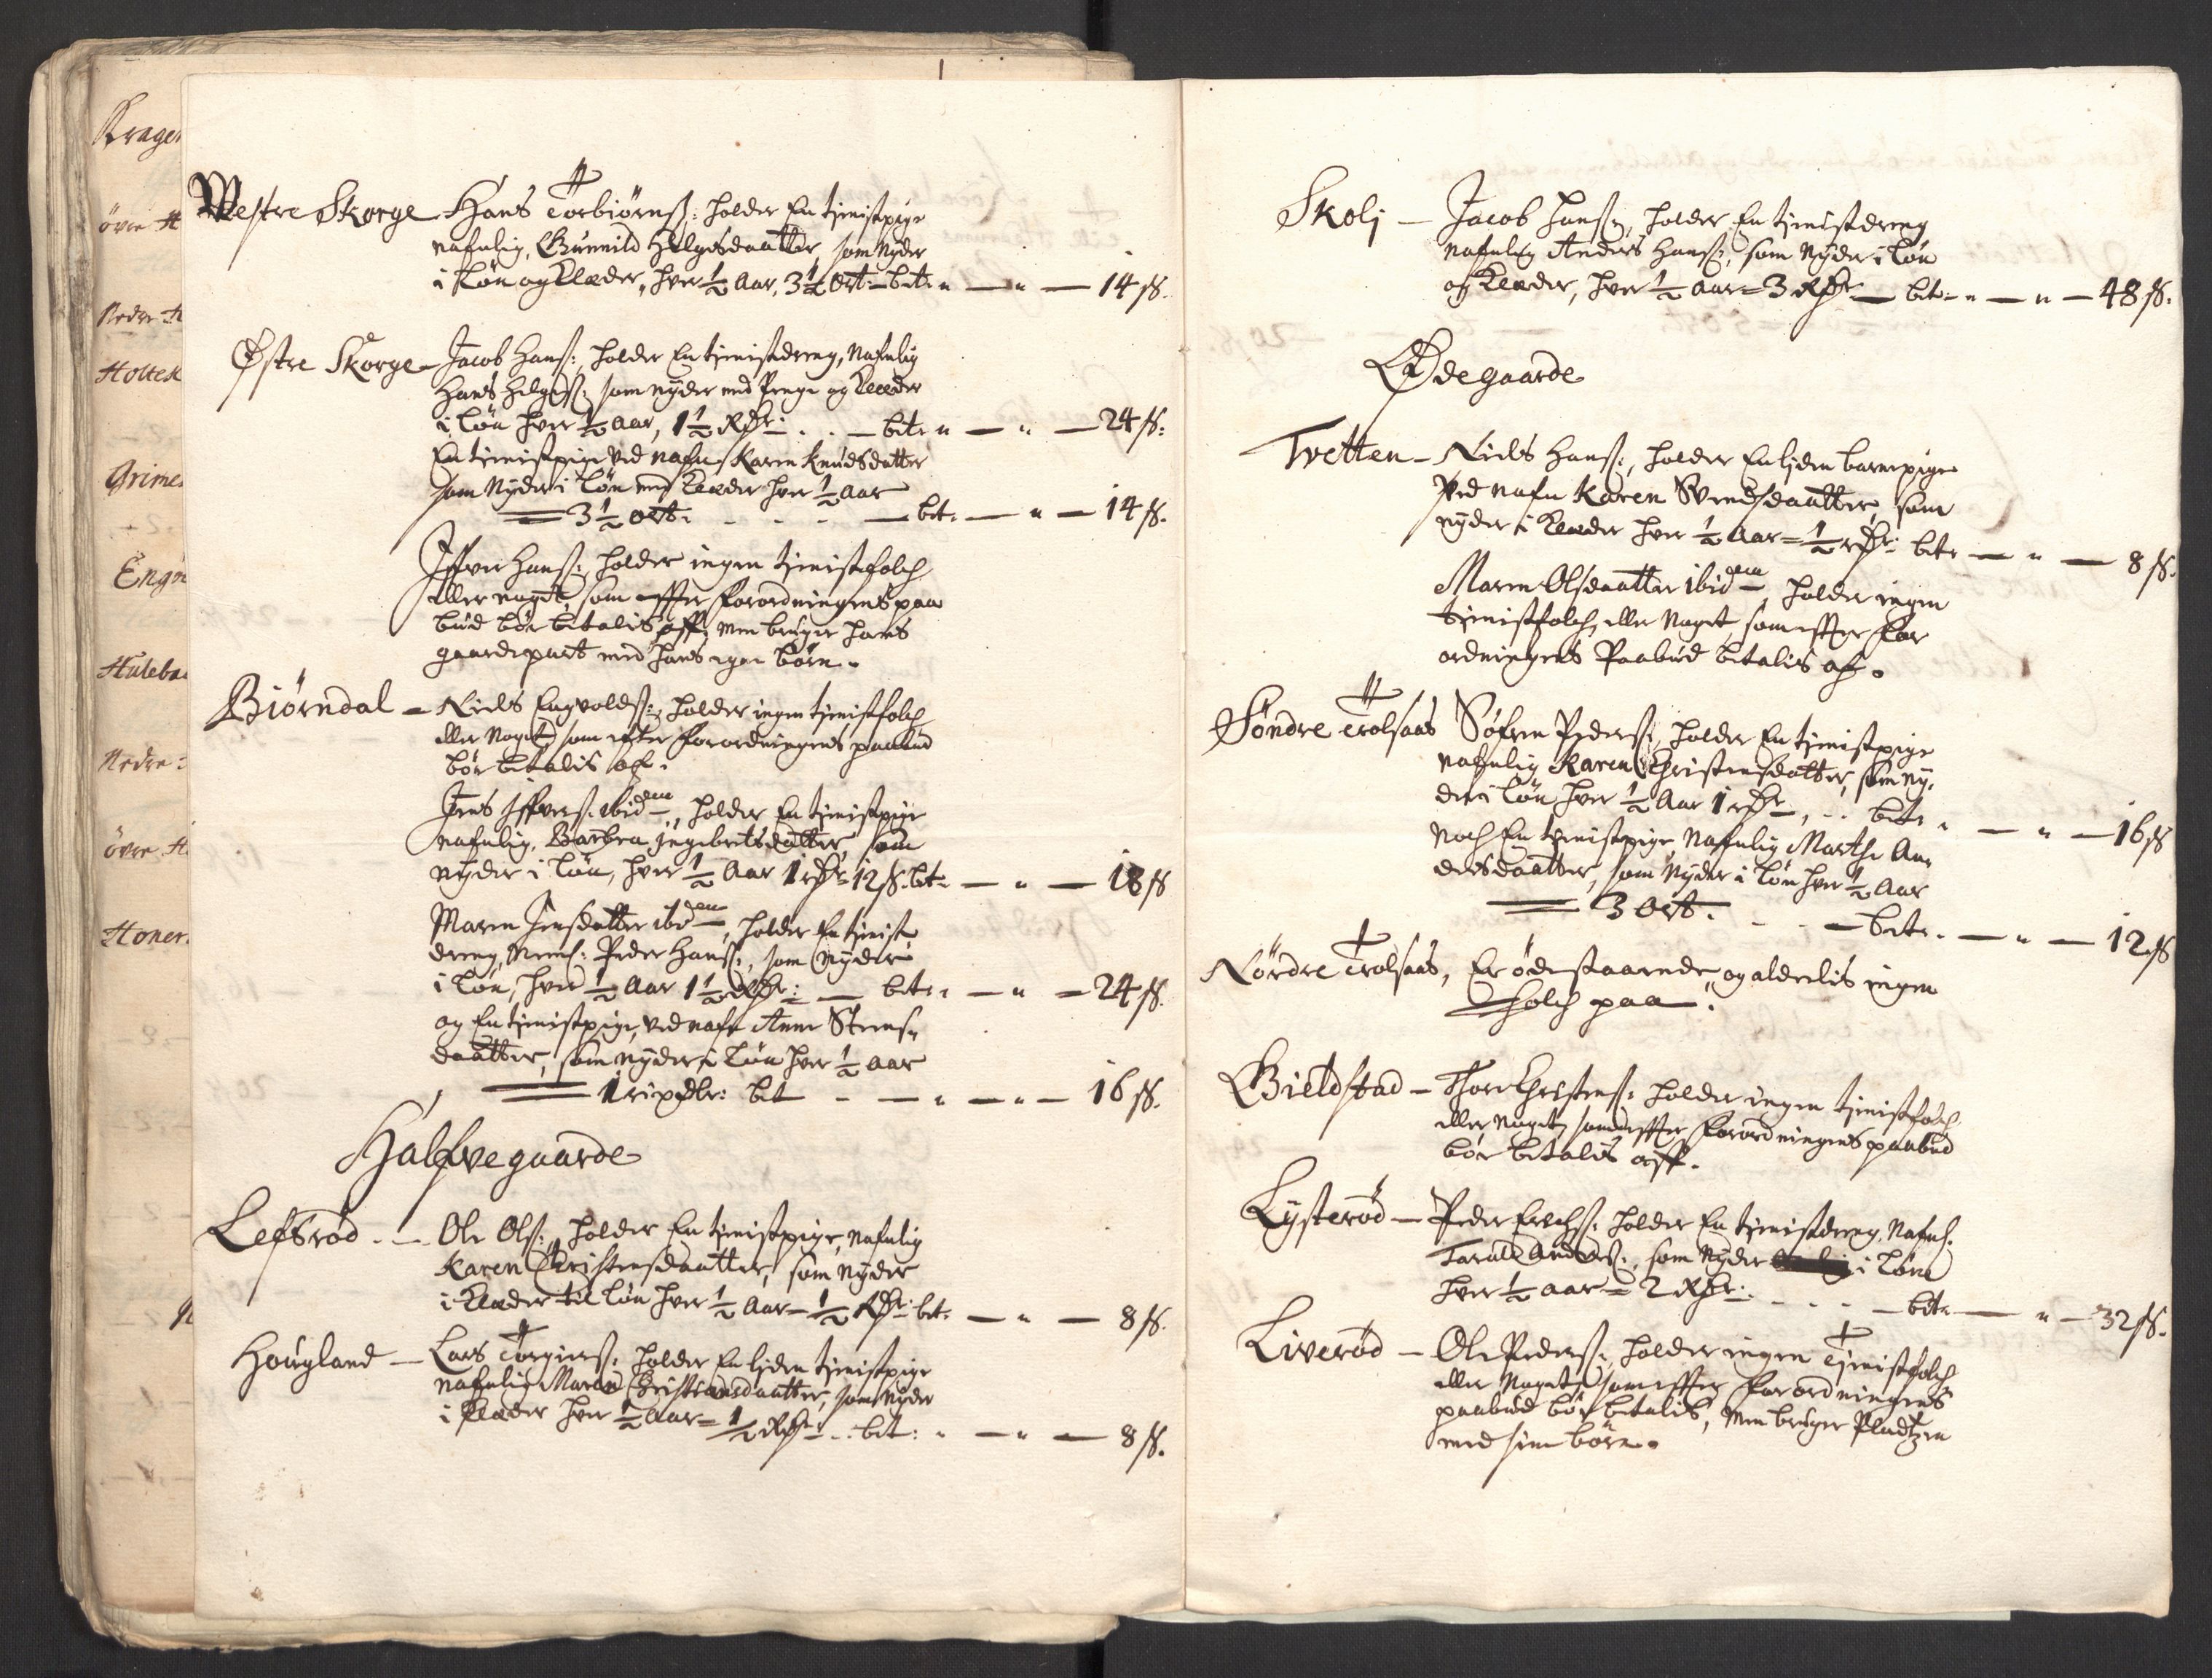 Krage
Westre Skorge Hans Torbiörnß: holder En tienistpige
nafnlig, Gunnild Helgesdaatter, som nyder
i Løn og Klæder, hver 1/2 Aar, 3 1/2 Ort - bet: " — " — 14 ß.
Østre Skorge - Jacob Hansß: holder En tienistdreng, Nafnlig
Hans Helgesß: som nyder med Penge og Klæder
i Løn hver 1/2 Aar, 1 1/2 Rdr: . . — bet: " — " — 24 ß:
En tienistpige ved nafn Karen Knudsdatter
som Nyder i Løn med Klæder hver 1/2 Aar
3 1/2 ort: - - - — bet: — " — 14 ß.
Iffver Hansß: holder ingen tienistfolch
eller noget, som effter forordningens paa
bud bör betalis aff, men bruger hans
gaardepart med hans egne börn.
Biörndal - Niels Engvoldsß: holder ingen tienistfolch
eller Noget, som efter forordningens paabud
bör betalis af.
Jens Iffversß: ibidem, holder En tienistpige
nafnlig, Barbra Ingebretsdatter som
nyder i Løn, hver 1/2 Aar 1 rdr 12 ß. bet: — " — 18 ß
Maren Jensdatter ibidem, holder En tienist
dreng, Nafnl: Peder Hansß:, som nyder
i Løn, hver 1/2 Aar 1 1/2 Rdr: — bet: " — " — 24 ß.
og En tienistpige, ved nafn Anne Steens
daatter, som nyder i Løn hver 1/2 Aar
1 rixdlr: bet - — " — " — 16 ß.
Halfvegaarde
Lefsröd - Ole Olsß:, holder En tienistpige, nafnlig
Karen Christensdaatter, som nyder
i Klæder til Løn hver 1/2 Aar - 1/2 Rdr: bet: — " — 8 ß.
Hougland — Lars Torgiersß: holder En liden tienistpige
nafnlig Maren Christensdaatter, som Nyder
i Klæder hver 1/2 Aar = 1/2 Rdr - . . bet: " — " — 8 ß.
Skolj — Jacob Hansß:, holder En tienistdreng
Nafnlig Anders Hansß:, som nyder i Løn
og Klæder, hver 1/2 aar = 3 Rdr — bet: " — " — 48 ß.
Ødegaarde
Tvetten - Niels Hansß:, holder En liden barnepige
Ved nafn Karen Svendsdaatter, som
nyder i Klæder hver 1/2 Aar = 1/2 rdr: bet: — " — 8 ß.
Maren Olsdaatter ibidem, holder ingen
tienistfolch, eller Noget, som effter for
ordningens Paabud betalis af.
Söndre Trolsaas Söfren Pedersß: holder En tienistpige
nafnlig Karen Christensdatter, som ny,
der i Løn hver 1/2 Aar 1 rdr, . . bet: " — " — 16 ß
Noch En tienistpige, Nafnlig Marthe An,
dersdaatter, som Nyder i Løn hver 1/2 Aar
3 Ort. - - — bet: . — " — 12 ß
Nördre Trolsaas, Er ödestaaende, og alderlis ingen
folch paa.
Bieldstad - Thore Christensß: holder ingen tienistfolch
eller Noget, som effter forordningens paabud
bör betalis aff.
Lysteröd - Peder Erichsß: holder En tienistdreng, Nafnl:
Tarald Andersß:, som Nyder i Løn
hver 1/2 aar = 2 Rdr: . . . . — bet: — " — 32 ß.
Liveröd - Ole Pedersß:, holder ingen Tienistfolch
eller Noget, som effter forordningens
paabud bör betalis, men bruger Pladtzen
med sine börn.